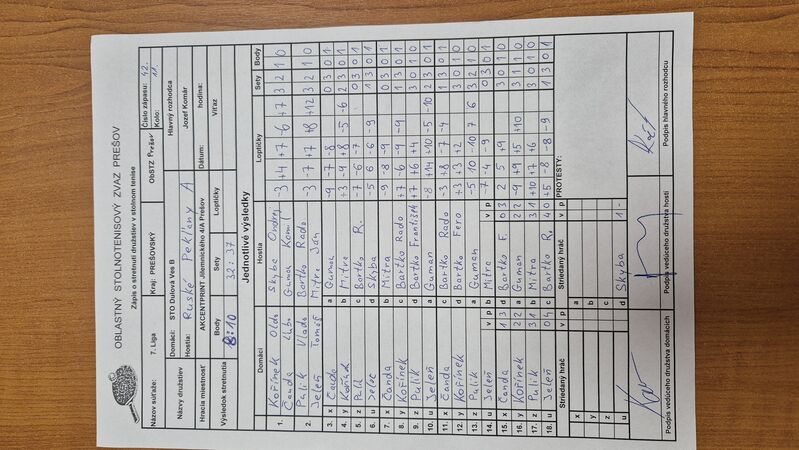 OBLASTNÝ STOLNOTENISOVÝ ZVAZ PREŠOV
Zápis o stretnutí družstiev v stolnom tenise
Názov súťaže: 7. Liga Kraj: PREŠOVSKÝ ObSTZ Prešov Číslo zápasu: 42. Kolo: 11.
Názvy družstiev Domáci: STO Dulová Ves B Hlavný rozhodca
Hostia: Ruské Pekľany A Jozef Komár
Hracia miestnosť AKCENTPRINT Jilemnického 4/A Prešov Dátum: hodina:
Výsledok stretnutia Body Sety Loptičky Víťaz
8:10 32:37
Jednotlivé výsledky
Domáci Hostia Loptičky Sety Body
1. Kořínek Oldo Skyba Ondrej -3 +4 +7 -6 +7 3 2 1 0
Čanda Ľubo Guman Kamil
2. Pulik Vlado Bartko Rado -3 -7 +7 +8 +12 3 2 1 0
Jeleň Tomáš Mitro Ján
3. x a Guman -9 -7 -8 0 3 0 1
4. y b Mitro +3 -9 +8 -5 -6 2 3 0 1
5. z c Bartko R. -7 -6 -7 0 3 0 1
6. u d Skyba -5 6 -6 -9 1 3 0 1
7. x Čanda b Mitro -9 -8 -9 0 3 0 1
8. y Kořínek c Bartko Rado +7 -6 -9 -9 1 3 0 1
9. z Pulik d Bartko František +7 +6 +4 3 0 1 0
10. u Jeleň a Guman -8 +14 +10 -5 -10 2 3 0 1
11. x Čanda c Bartko Rado -3 +8 -7 -4 1 3 0 1
12. y Kořínek d Bartko Fero +3 +3 +2 3 0 1 0
13. z Pulik a Guman -5 10 -10 7 6 3 2 1 0
14. u Jeleň b Mitro -7 -4 -9 0 3 0 1
v p v p
15. x Čanda 1 3 d Bartko F. 0 3 2 5 +9 3 0 1 0
16. y Kořínek 2 2 a Guman 2 2 -9 +9 +5 +10 3 1 1 0
17. z Pulik 3 1 b Mitro 3 1 +10 +7 +6 3 0 1 0
18. u Jeleň 0 4 c Bartko R. 4 0 +5 -8 -8 -9 1 3 0 1
Striedaný hráč v p Striedaný hráč v p PROTESTY:
x a
y b
z c
u d Skyba 1 -
Podpis vedúceho družstva domácich Podpis vedúceho družstva hostí Podpis hlavného rozhodcu